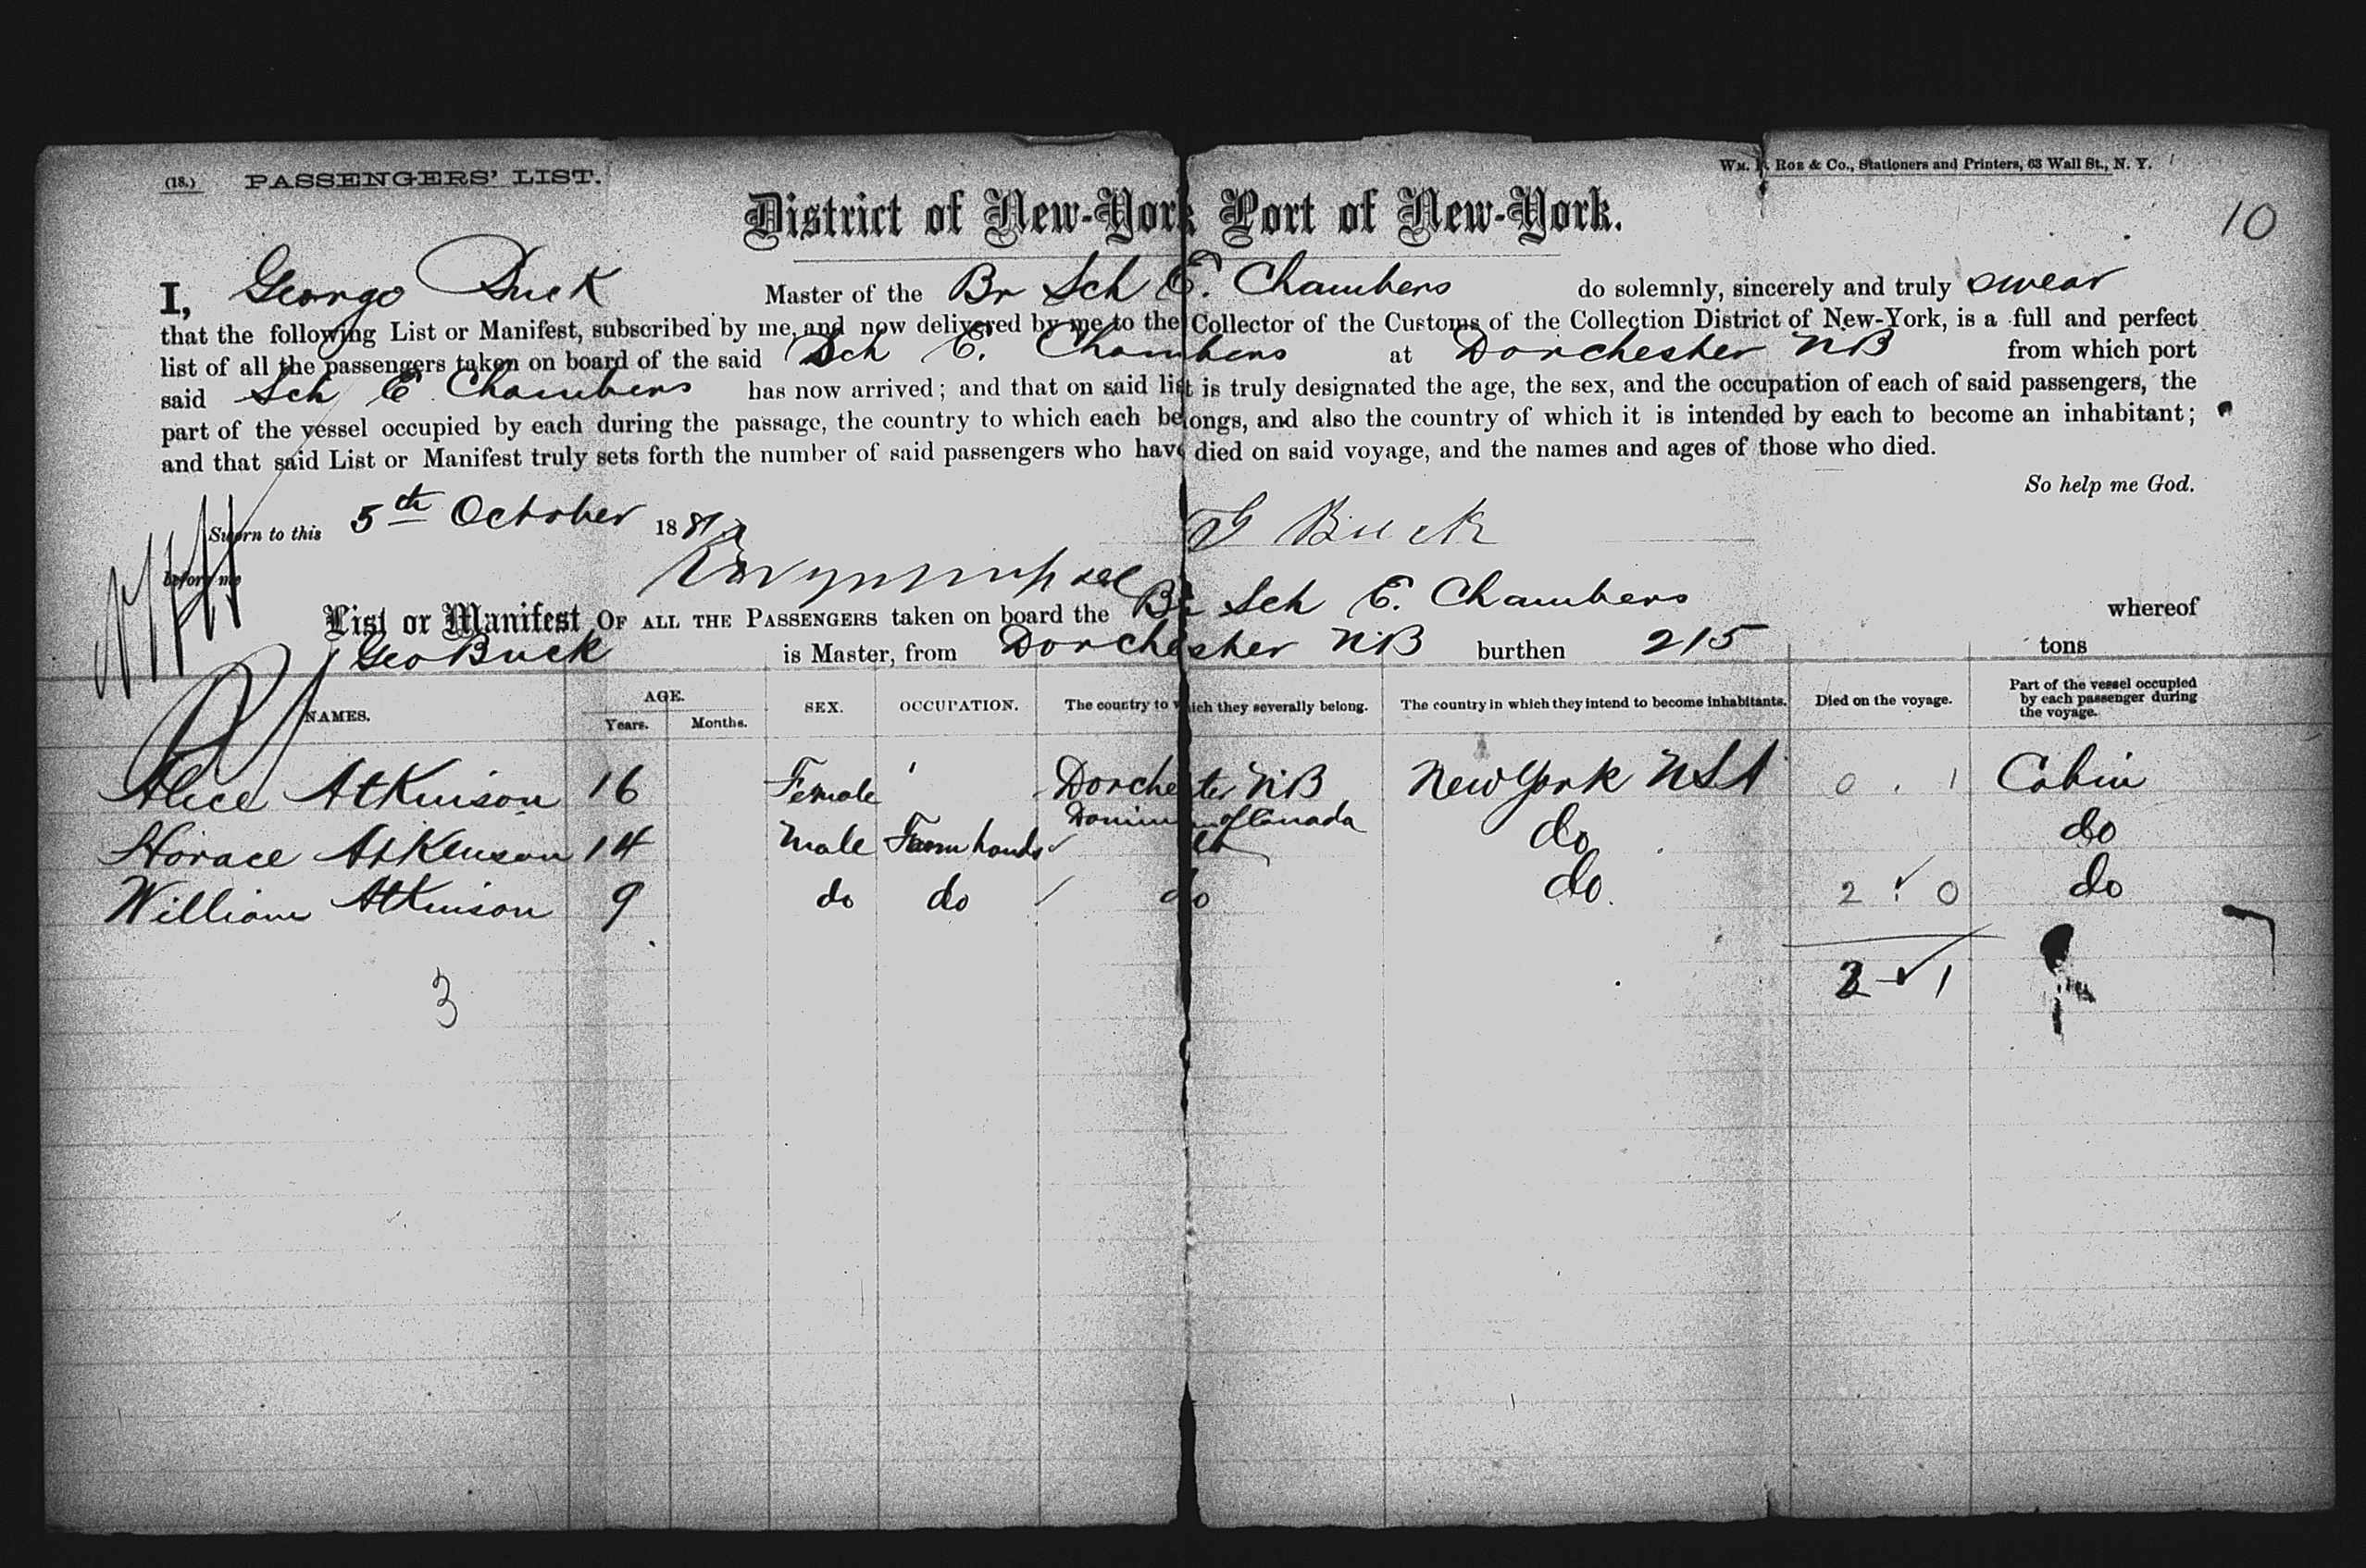 (18.) PASSENGERS' LIST.
WM. Roe & Co., Stationers and Printers, 63 Wall St., N. Y.
District of New-York Port of New-York.
10
I, George Buck Master of the Br Sch E. Chambers do solemnly, sincerely and truly swear
that the following List or Manifest, subscribed by me, and now delivered by me to the Collector of the Customs of the Collection District of New-York, is a full and perfect
list of all the passengers taken on board of the said Sch E. Chambers at Dorchester NB from which port
said Sch E. Chambers has now arrived; and that on said list is truly designated the age, the sex, and the occupation of each of said passengers, the
part of the vessel occupied by each during the passage, the country to which each belongs, and also the country of which it is intended by each to become an inhabitant;
and that said List or Manifest truly sets forth the number of said passengers who have died on said voyage, and the names and ages of those who died.
So help me God.
Sworn to this 5th October 188
G Buck
before me
List or Manifest OF ALL THE PASSENGERS taken on board the Br Sch E. Chambers whereof
Geo Buck is Master, from Dorchester NB burthen 215 tons
NAMES. AGE. Years. Months. SEX. OCCUPATION. The country to which they severally belong. The country in which they intend to become inhabitants. Died on the voyage. Part of the vessel occupied by each passenger during the voyage.
Alice Atkinson 16 Female Dorchester NB New York USA 0 . 1 Cabin
Dominion of Canada
Horace Atkinson 14 Male Farm hands do do do
William Atkinson 9 do do do do 2 . 0 do
2 1
3